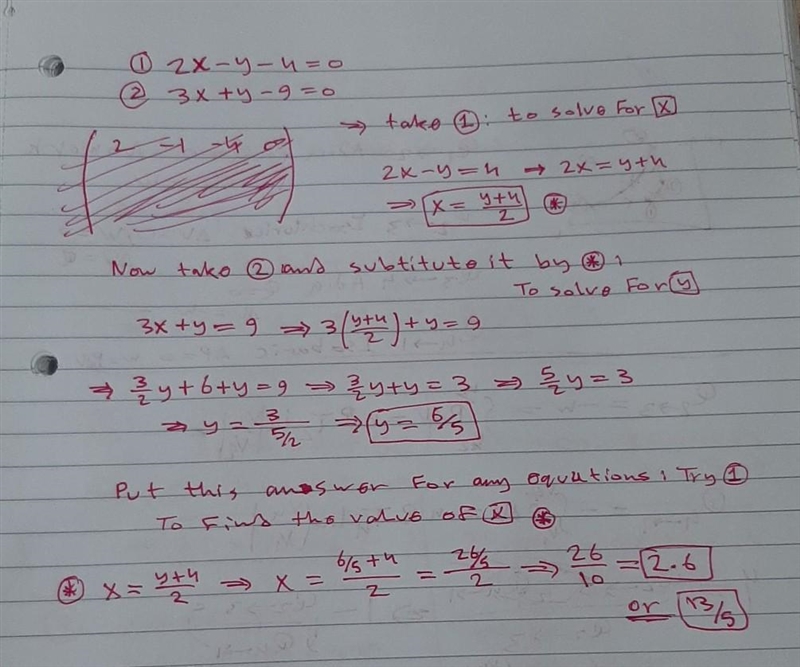 ① 2x-y-4=0
② 3x+y-9=0
2 -1 -4 0
⇒ take ①: to solve For x
2x-y=4 → 2x=y+4
⇒ x = (y+4)/2 ⊛
Now take ② and subtitute it by ⊛,
To solve For y
3x+y=9 ⇒ 3((y+4)/2)+y=9
⇒ 3/2 y+6+y=9 ⇒ 3/2 y+y=3 ⇒ 5/2 y=3
⇒ y = 3/(5/2) ⇒ y = 6/5
Put this answer For any equations, Try ①
To Find the value of x ⊛
⊛ x = (y+4)/2 ⇒ x = (6/5+4)/2 = (26/5)/2 ⇒ 26/10 = 2.6
or 13/5